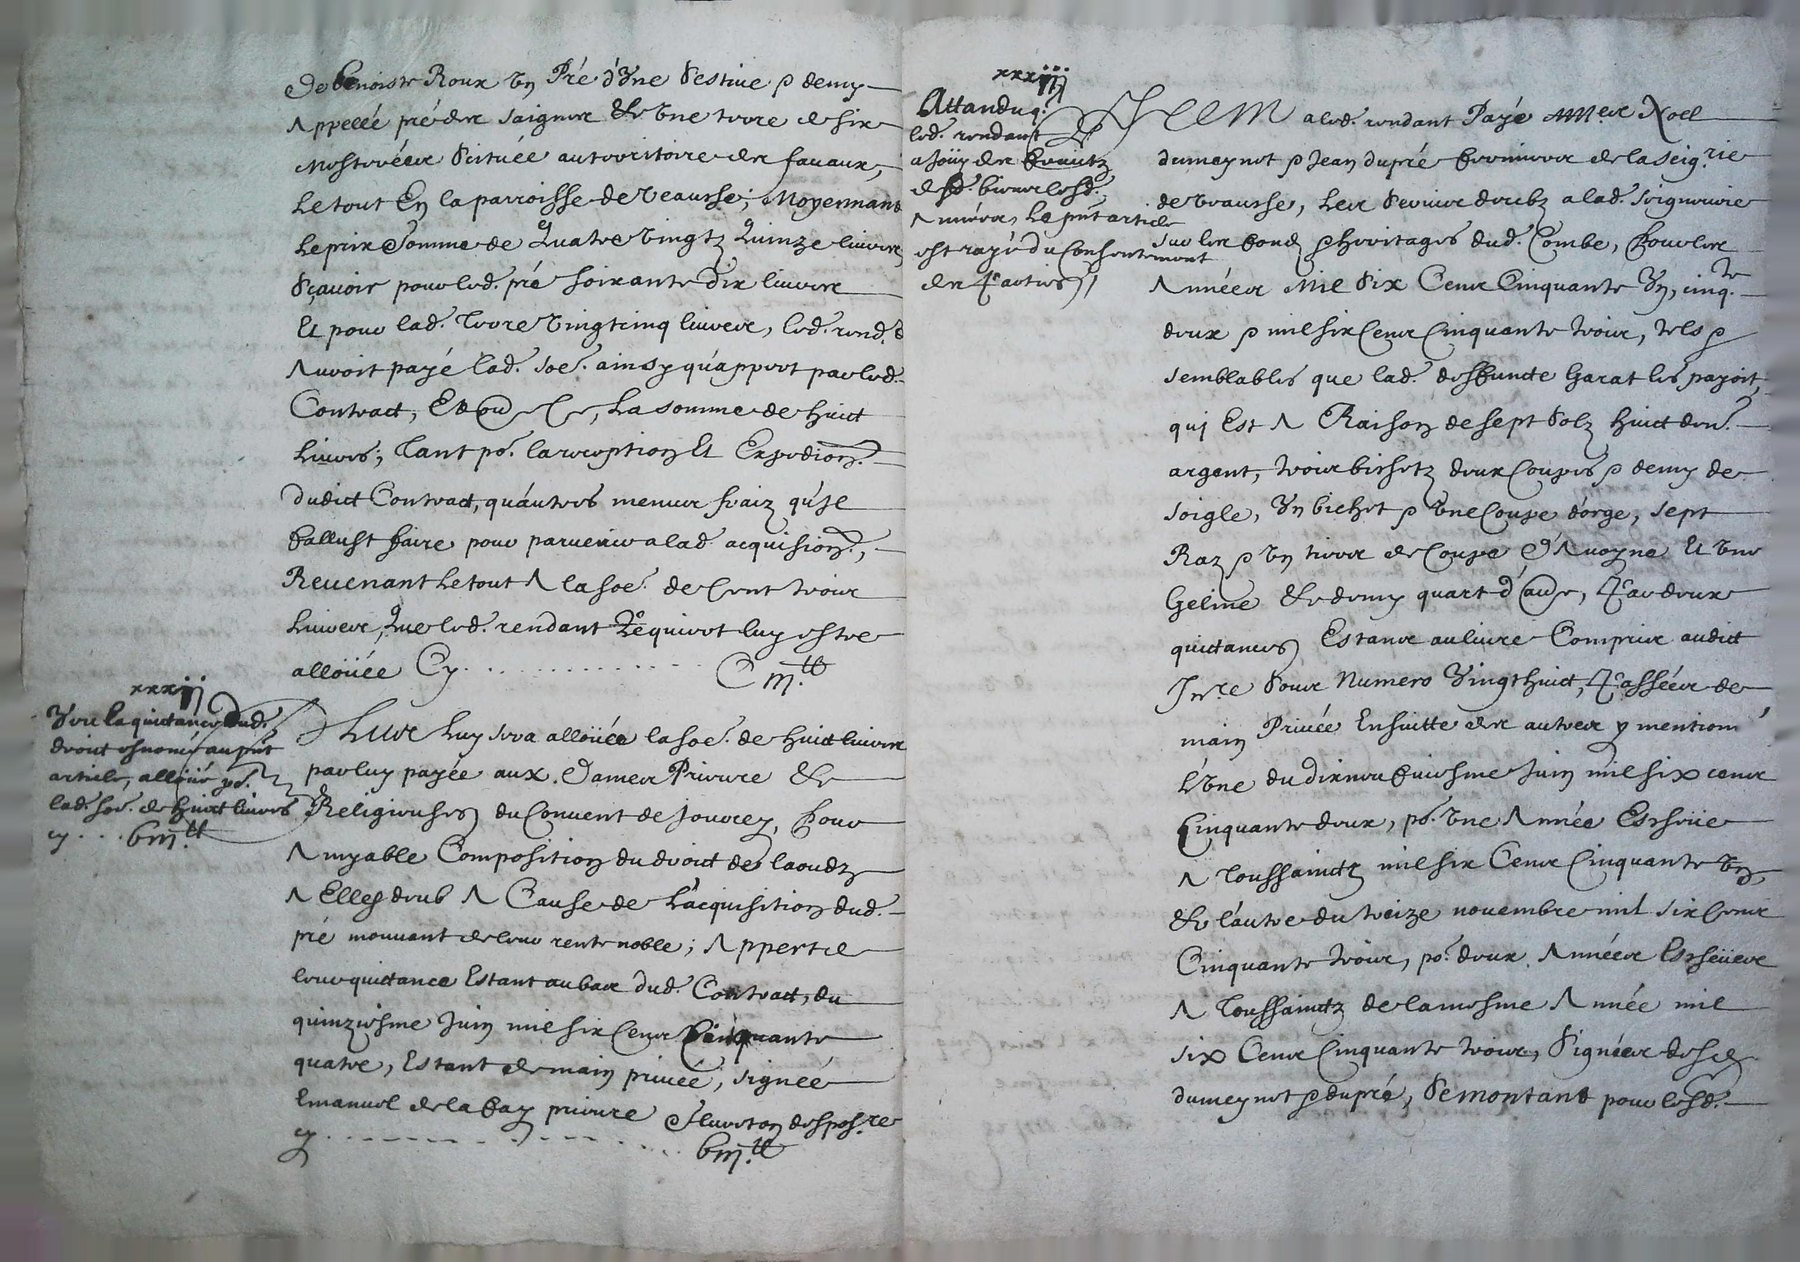 de benoiste Roux un Pré d'Une Sestiue & demy
Appellé pré des saignes & Une terre de six
Mesterées Située au territoire des fauaux,
Le tout En la parroisse de Veausse; Moyennant
Le prix & somme de Quatre Vingtz Quinze liures
Sçauoir pour led. pré soixante dix liures
Et pour lad. Terre Vingt cinq liures, led. rend.t
Auoit payé lad. soe. ainsy qu'appert par led.
Contract, Et ou ce, La somme de huict
Liures; Tant po.r la reception Et Expedion.
dudict Contract, qu'autres menus fraiz qu'il
fallust faire pour paruenir a lad. acquision.,
Reuenant Le tout A la soe. de Cent trois
Liures, Que led. rendant Requiert luy estre
alloüée Cy . . . . . . . . . . C iij.tt
xxxij
Veu la quictance dud.
droict esnoncé au pnt
article, alloüé po.r
lad. soe. de huict liures
cy . . . viij.tt
Plus Luy sera alloüée la soe. de huict liures
par luy payée aux Dames Prieure &
Religieuses du Conuent de Jourcey, Pour
Amyable Composition du droict de laoudz
A Elles deub A Cause de L'acquisition dud.
pré mouuant de leur rente noble; Appert de
leur quictance Estant au bas dud. Contract, du
quinziesme Juin mil six Cens Cinquante
quatre, Estant de main priuée, signée
Emanuel de la fay prieure
cy . . . . . . . . . . viij.tt
xxxiij
Attandu q.
led. rendant
a joüy des fruictz
desd. biens lesd.
Années, Le pnt article
est rayé du Consentement
des parties
Item a led. rendant Payé A M.es Noel
dumeynet & Jean dupré fermiers de la seig.rie
de Veausse, Les Seruis deubz a lad. seigneurie
sur les fondz & heritages dud. Combe, Pour les
Années Mil Six Cens Cinquante Un, cinq.te
deux & mil six Cens Cinquante trois, tels &
semblables que lad. deffuncte Garat les payoit,
qui Est A Raison de sept Solz huict den.
argent, trois bichetz deux Coupes & demy de
soigle, Un bichet & Une Coupe d'orge, sept
Raz & Un tiers de Coupe d'Auoyne Et Une
Geline & demy quart d'autre, Par deux
quictances Estans au liure Comprins audict
Inre. Soubz Numero Vingt huict, Passées de
main Priuée Ensuitte des autres y mention.
L'Une du dix neufuiesme Juin mil six cens
Cinquante deux, po.r Une Année Escheüe
A Toussainctz mil six Cens Cinquante Un,
& l'autre du treize nouembre mil six Cens
Cinquante trois, po.r deux Années Escheües
A Toussainctz de la mesme Année mil
six Cens Cinquante trois, Signées desd.
dumeynet & dupré, Se montant pour lesd.